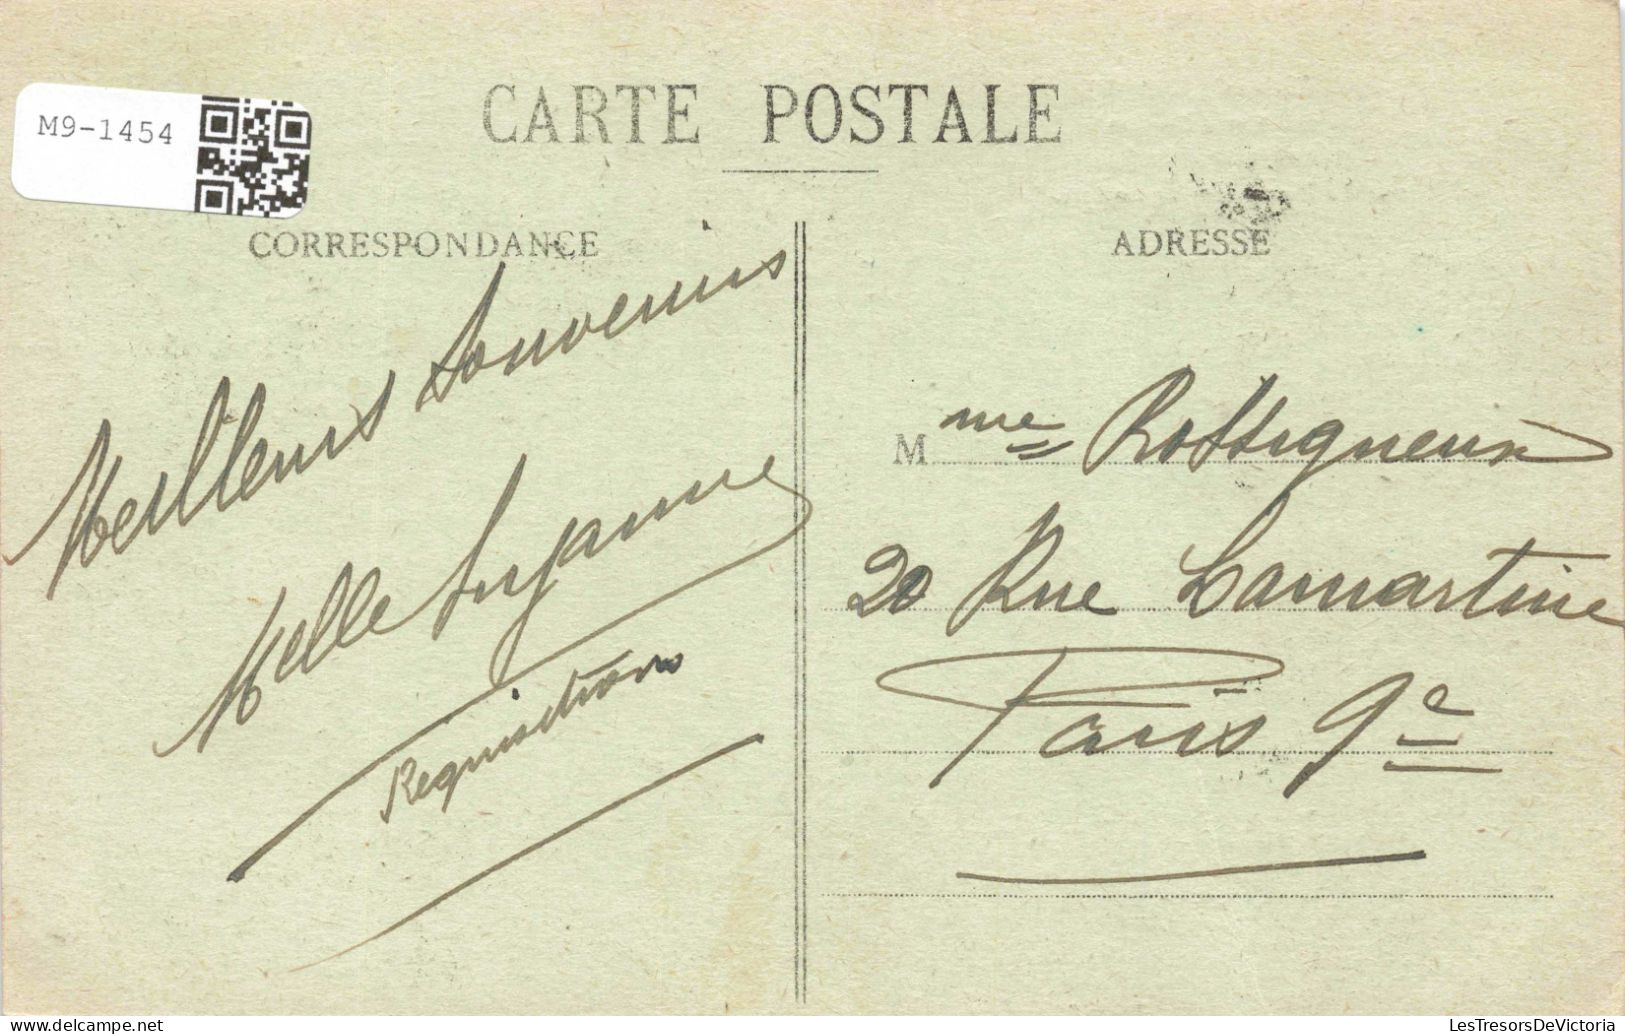 M9-1454
CARTE POSTALE
CORRESPONDANCE
ADRESSE
Meilleurs Souvenirs
Melle Suzanne
Requisition
Mme Rossigneux
20 Rue Lamartine
Paris 9e
delcampe.net
LesTresorsDeVictoria